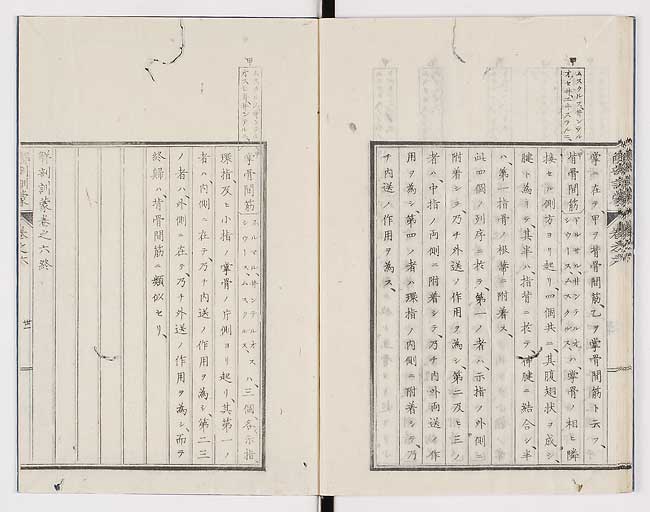 掌ニ在ヲ甲ヲ背骨間筋、乙ヲ掌骨間筋ト云フ、
背骨間筋 ドルサル、サンテルオ、シウースムスクルス、ハ、掌骨ノ相ヒ隣
接セル側方ヨリ起リ四個共ニ、其腹翅状ヲ成シ、
腱ト為リテ、其半ハ指背ニ於テ伸腱ニ結合シ、半
ハ、第一指骨ノ根基ニ附着ス、
此四個ノ列序ニ於テ、第一ノ者ハ、示指ノ外側ニ
附着シテ、乃チ外送ノ作用ヲ為シ、第二及ヒ三ノ
者ハ、中指ノ両側ニ附着シテ、乃チ内外両送ノ作
用ヲ為シ、第四ノ者ハ、環指ノ内側ニ附着シテ、乃
チ内送ノ作用ヲ為ス、
掌骨間筋 ポルマル、サンテルオス、シウースムスクルス、ハ、三個各、示指、
環指及ヒ小指ノ掌骨ノ片側ヨリ起リ、其第一ノ
者ハ内側ニ在テ、乃チ内送ノ作用ヲ為シ、第二三
ノ者ハ、外側ニ在テ、乃チ外送ノ作用ヲ為シ、而テ
終歸ハ背骨間筋ニ類似セリ、
解剖訓蒙巻之六終
解剖訓蒙
巻之六
廿一